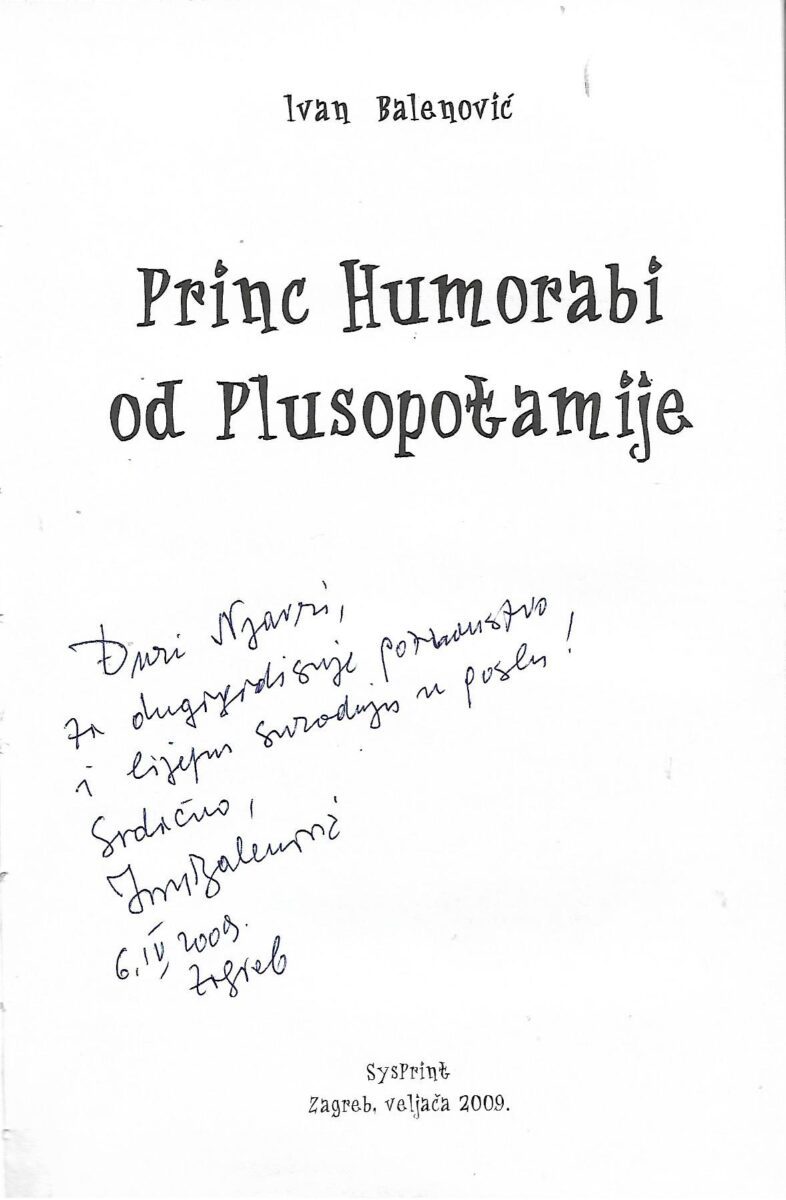 Ivan Balenović
Princ Humorabi
od Plusopotamije
Đuri Njavri,
za dugogodišnje poznanstvo
i lijepu suradnju u poslu!
Srdačno,
Ivan Balenović
6. IV, 2009.
Zagreb
SysPrint
Zagreb, veljača 2009.